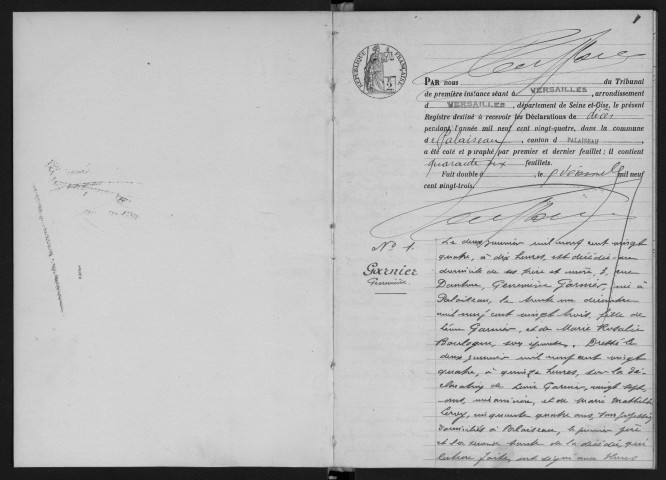 1
RÉPUBLIQUE FRANÇAISE
PAR nous du Tribunal
de première instance séant à VERSAILLES, arrondissement
d VERSAILLES, département de Seine-et-Oise, le présent
Registre destiné à recevoir les Déclarations de décès
pendant l'année mil neuf cent vingt-quatre, dans la commune
de Palaiseau, canton d PALAISEAU;
a été coté et paraphé par premier et dernier feuillet; il contient
quarante six feuillets.
Fait double à , le mil neuf
cent vingt-trois.
No 1.
Garnier
Geneviève
Le deux janvier mil neuf cent vingt
quatre, à dix heures, est décédée au
domicile de ses père et mère, 3, rue
Danton, Geneviève Garnier, née à
Palaiseau, le trente un décembre
mil neuf cent vingt trois, fille de
Garnier, et de Marie Rosalie
Boulogne, son épouse. Dressé le
deux janvier mil neuf cent vingt
quatre, à quinze heures, sur la dé-
claration de Garnier, vingt sept
ans, et de Marie Mathilde
Leroy, cinquante quatre ans,
domiciliés à Palaiseau, le premier père
et la seconde tante de la décédée, qui
lecture faite, ont signé avec Nous